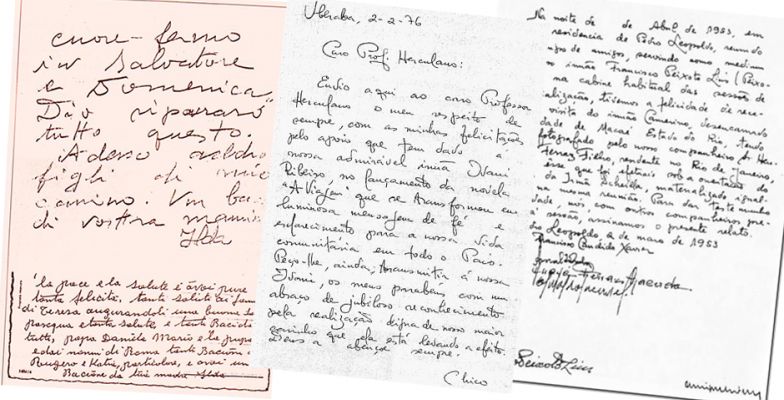 cuore-fermo
in Salvatore
e Domenica
Dio riparará
tutto questo.
Adesso
figli di mio
camino. Un
di vostra mamma
Ilda
la pace e la salute e
tanta felicitá, tanta salute
di Teresa augurandoli una buona
pasqua e tanta salute, e tanti Bacidi
tutti, papa Daniele Mario e la
e dai nonni di Roma tanti Bacioni
Ruggero e Katia, particolare, e
Bacione da tua madre Ilda
Uberaba, 2-2-76
Caro Prof. Herculano:
Envio aqui ao caro Professor
Herculano o meu respeito de
sempre, com as minhas felicitações
pelo apoio que tem dado a
nossa admirável irmã Ivani
Ribeiro, no lançamento da novela
"A Viagem" que se transformou em
luminosa mensagem de fé e
esclarecimento para a nossa vida
comunitária em todo o País.
Peço-lhe, ainda, transmitir á nossa
Ivani, os meus parabéns com um
abraço de jubiloso reconhecimento
pela realização digna de nosso maior
carinho que ela está levando a efeito.
Deus a abençõe sempre.
Chico
Na noite de de Abril de 1953, em
residencia de Pedro Leopoldo, reunido
de amigos, servindo como medium
o irmão Francisco Peixoto Lins (Peixo-
na cabine habitual das sessões de
ialização, tivemos a felicidade de rece-
visita do irmão Camerino, desencarnado
dade de Macaé Estado do Rio, tendo
fotografado pelo nosso companheiro
Ferraz Filho, residente no Rio de Janeiro,
esse que foi efetuado sob a orientação do
da Irmã Scheilla, materializada igual-
na mesma reunião. Para dar testemunho
dade, nós com outros companheiros
á sessão, assinamos o presente relato.
dro Leopoldo, 2 de maio de 1953
Francisco Candido Xavier
Peixoto Lins